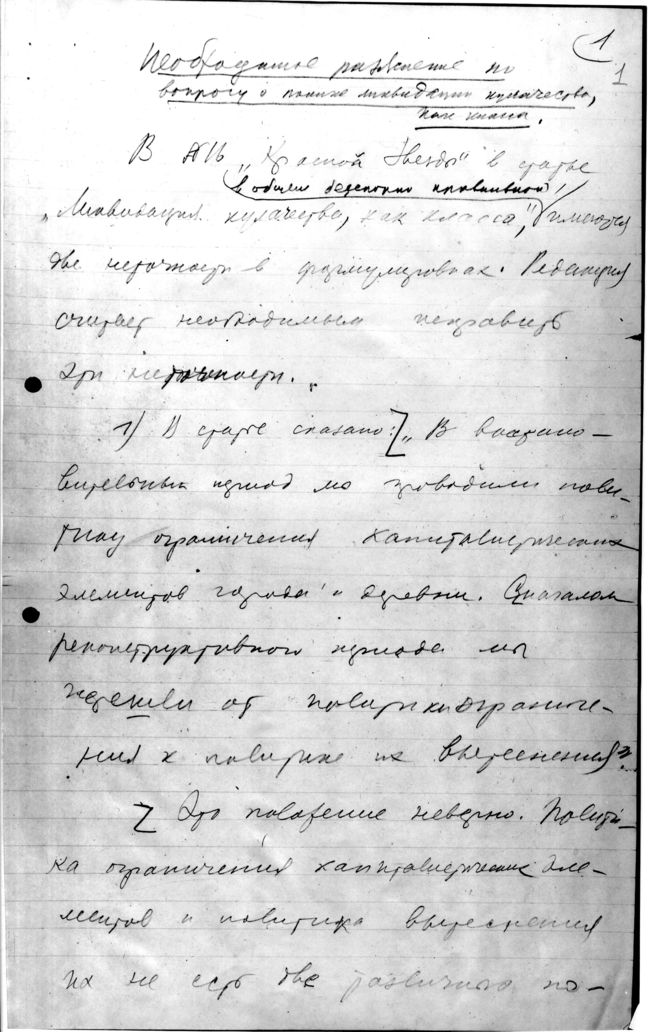 1
1
Необходимое разъяснение по
вопросу о политике ликвидации кулачества,
как класса.
В №16 „Красной Звезды" в статье
в общем безусловно правильной,
„Ликвидация кулачества, как класса", имеются
две неточности в формулировках. Редакция
считает необходимым исправить
эти неточности.
1) В статье сказано: „В восстано-
вительный период мы проводили поли-
тику ограничения капиталистических
элементов города и деревни. С началом
реконструктивного периода мы
перешли от политики ограниче-
ния к политике их вытеснения".
Это положение неверно. Полити-
ка ограничения капиталистических эле-
ментов и политика вытеснения
их не есть две различные по-